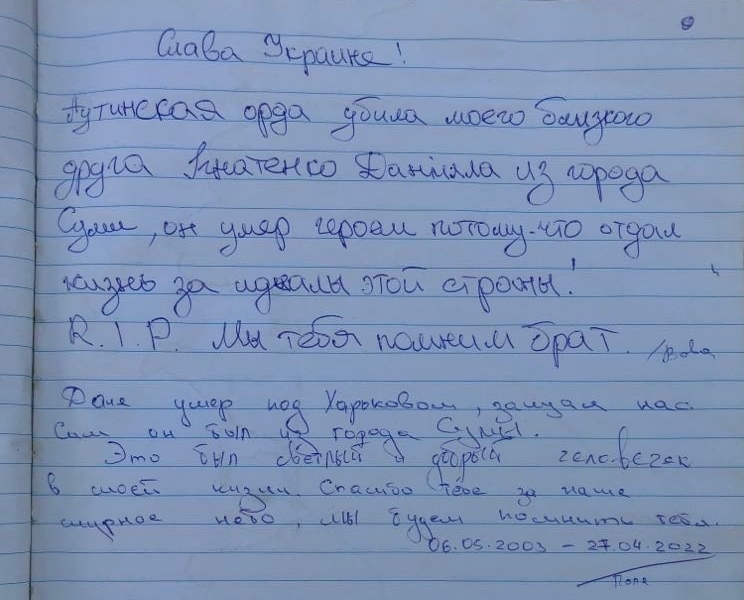 Слава Украине!
Путинская орда убила моего близкого
друга Игнатенко Даніила из города
Сумы, он умер героем потому-что отдал
жизнь за идеалы этой страны!
R.I.P. Мы тебя помним брат.
Даня умер под Харьковом, защищая нас.
Сам он был из города Сумы.
Это был светлый и добрый человечек
в моей жизни. Спасибо тебе за наше
мирное небо, мы будем помнить тебя.
06.05.2003 – 27.04.2022
Поля